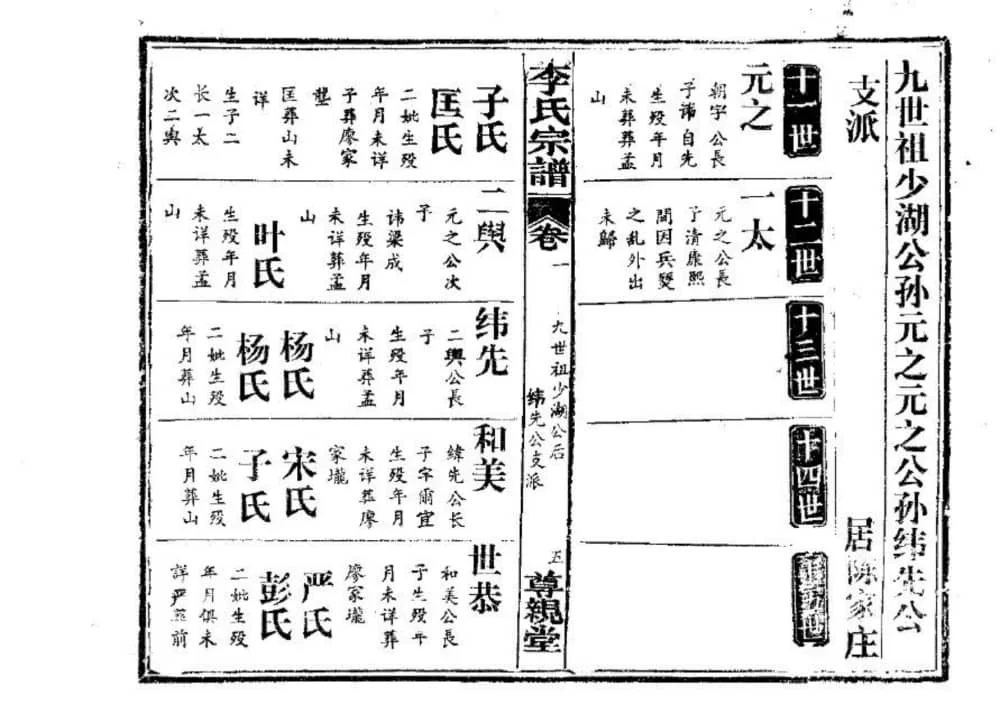 九世祖少湖公孙元之元之公孙纬先公
支派
居陈家庄
十一世
元之
朝宇公長
子讳自先
生殁年月
未葬葬孟
山
十二世
一太
元之公長
子清康熙
間因兵燹
之乱外出
未歸
十三世
十四世
十五世
李氏宗譜
卷一
九世祖少湖公后
纬先公支派
五
尊親堂
子氏
匡氏
二妣生殁
年月未详
子葬廖家
壟
匡葬山未
详
生子二
长一太
次二舆
二舆
元之公次
子
讳梁成
生殁年月
未详葬孟
山
叶氏
生殁年月
未详葬孟
山
纬先
二舆公長
子
生殁年月
未详葬孟
山
杨氏
杨氏
二妣生殁
年月葬山
和美
緯先公长
子字爾宜
生殁年月
未详葬廖
家壠
宋氏
子氏
二妣生殁
年月葬山
世恭
和美公長
子生殁年
月未详葬
廖冢壠
严氏
彭氏
二妣生殁
年月俱未
詳严葬前